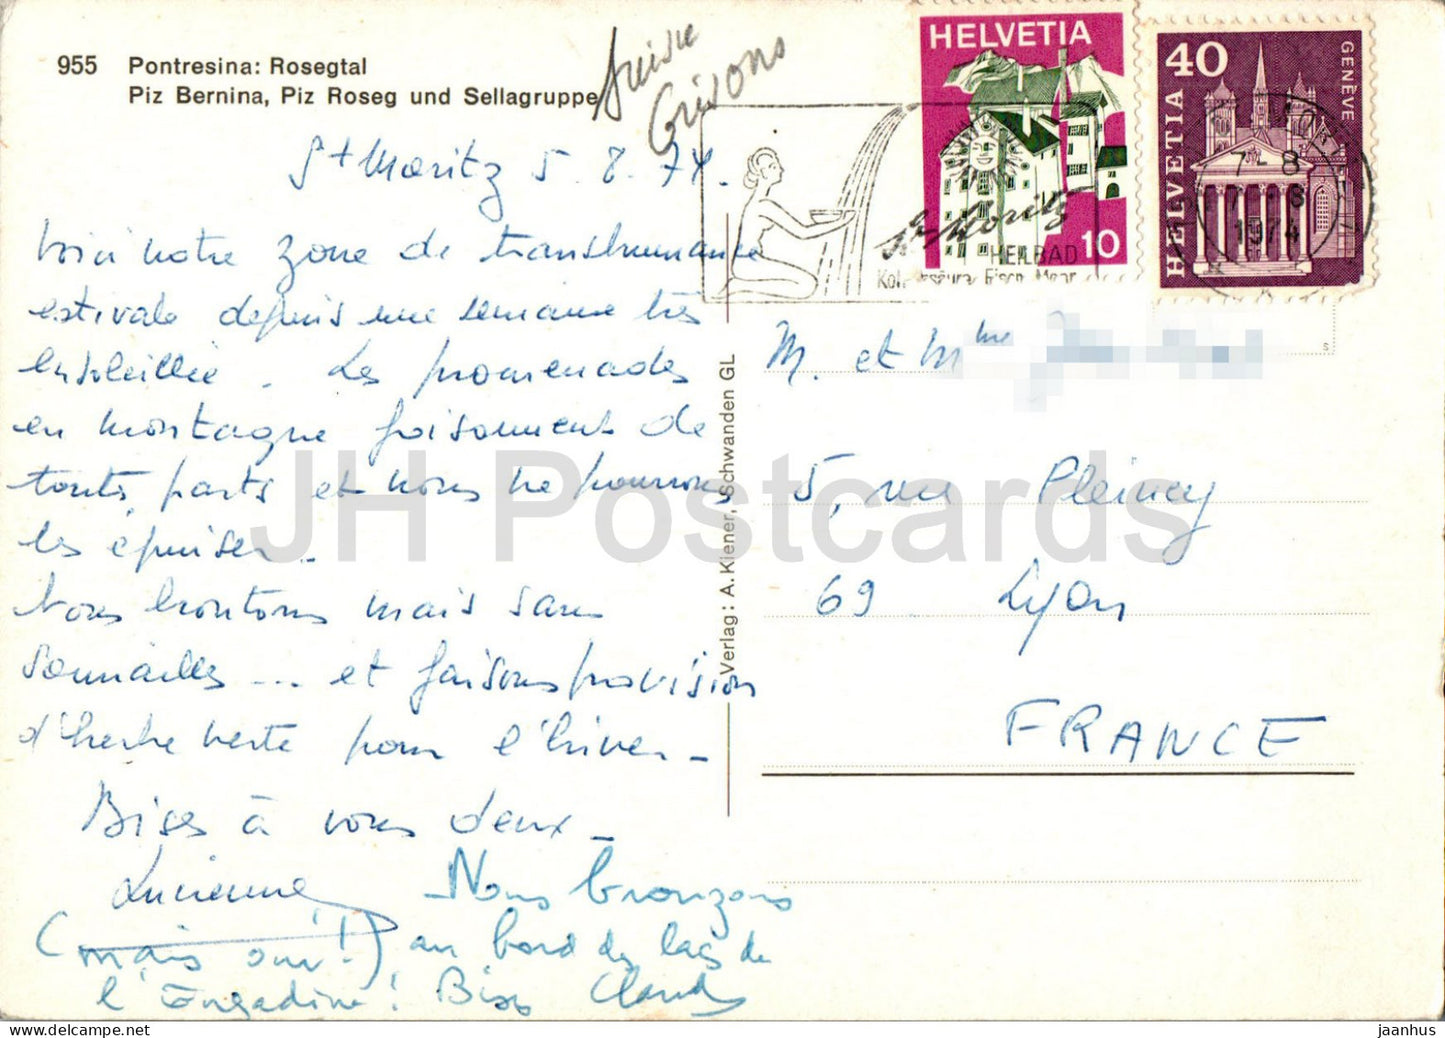 955 Pontresina: Rosegtal
Piz Bernina, Piz Roseg und Sellagruppe
Suisse
Grisons
St Moritz 5.8.74.
Voici notre zone de transhumance
estivale depuis une semaine très
ensoleillée. Les promenades
en montagne foisonnent de
toutes parts et nous ne pouvons
les épuiser.
Nous broutons mais sans
sonnailles... et faisons provision
d'herbe verte pour l'hiver.
Bises à vous deux.
Lucienne
Nous bronzons
(mais oui!) au bord des lacs de
l'Engadine! Bises Claude
Verlag: A. Kiener, Schwanden GL
HELVETIA
10
40
GENÈVE
HELVETIA
St. Moritz
HEILBAD
7-8
1974
M. et Mme
5, rue Pleiney
69 Lyon
FRANCE
S
JH Postcards
jaanhus @ hipstamp.com